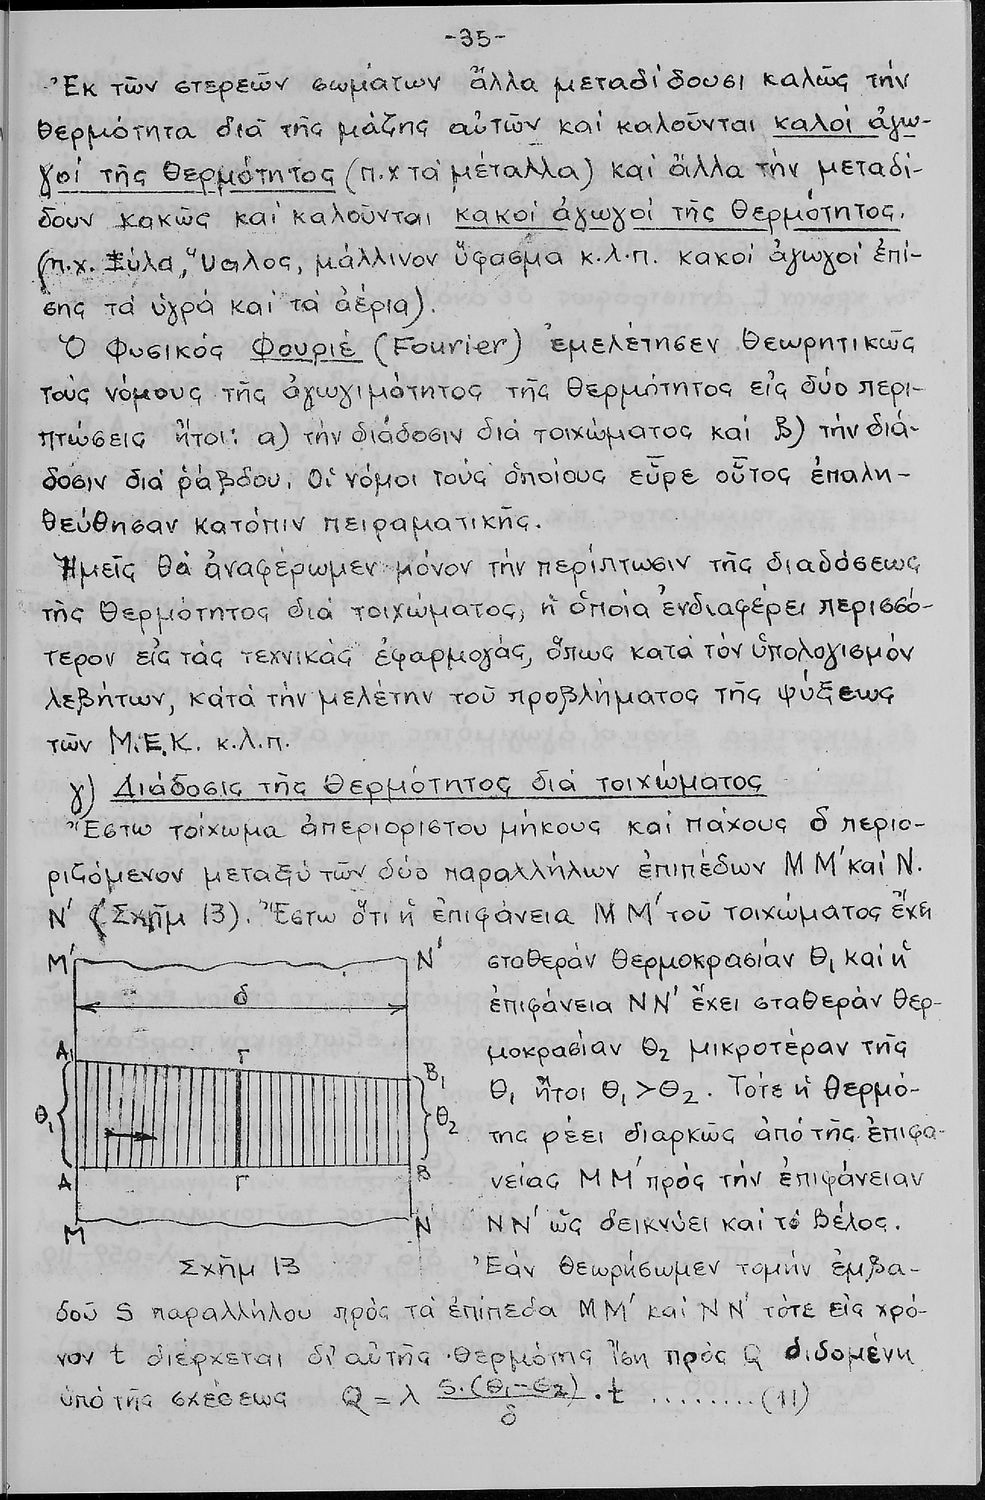 -35-
Ἐκ τῶν στερεῶν σωμάτων ἄλλα μεταδίδουσι καλῶς τήν
θερμότητα διά τῆς μάζης αὐτῶν καί καλοῦνται καλοί ἀγω-
γοί τῆς θερμότητος (π.χ τά μέταλλα) καί ἄλλα τήν μεταδί-
δουν κακῶς καί καλοῦνται κακοί ἀγωγοί τῆς θερμότητος.
(π.χ. Ξύλα, Ὕαλος, μάλλινον ὕφασμα κ.λ.π. κακοί ἀγωγοί ἐπί-
σης τά ὑγρά καί τά ἀέρια).
Ὁ Φυσικός Φουριέ (Fourier) ἐμελέτησεν θεωρητικῶς
τούς νόμους τῆς ἀγωγιμότητος τῆς θερμότητος εἰς δύο περι-
πτώσεις ἤτοι: α) τήν διάδοσιν διά τοιχώματος καί β) τήν διά-
δοσιν διά ράβδου. Οἱ νόμοι τούς ὁποίους εὗρε οὗτος ἐπαλη-
θεύθησαν κατόπιν πειραματικῆς.
Ἡμεῖς θά ἀναφέρωμεν μόνον τήν περίπτωσιν τῆς διαδόσεως
τῆς θερμότητος διά τοιχώματος, ἡ ὁποία ἐνδιαφέρει περισσό-
τερον εἰς τάς τεχνικάς ἐφαρμογάς, ὅπως κατά τόν ὑπολογισμόν
λεβήτων, κατά τήν μελέτην τοῦ προβλήματος τῆς ψύξεως
τῶν Μ.Ε.Κ. κ.λ.π.
γ) Διάδοσις τῆς θερμότητος διά τοιχώματος
Ἔστω τοίχωμα ἀπεριορίστου μήκους καί πάχους δ περιο-
ριζόμενον μεταξύ τῶν δύο παραλλήλων ἐπιπέδων ΜΜ΄ καί Ν.
Ν΄ (Σχῆμ 13). Ἔστω ὅτι ἡ ἐπιφάνεια ΜΜ΄ τοῦ τοιχώματος ἔχει
σταθεράν θερμοκρασίαν θ₁ καί ἡ
ἐπιφάνεια ΝΝ΄ ἔχει σταθεράν θερ-
μοκρασίαν θ₂ μικροτέραν τῆς
θ₁ ἤτοι θ₁ > θ₂. Τότε ἡ θερμό-
της ρέει διαρκῶς ἀπό τῆς ἐπιφα-
νείας ΜΜ΄ πρός τήν ἐπιφάνειαν
ΝΝ΄ ὡς δεικνύει καί τό βέλος.
Μ΄ Ν΄
δ
Α₁ Γ Β₁
θ₁ θ₂
Α Γ Β
Μ Ν
Σχῆμ 13
Ἐάν θεωρήσωμεν τομήν ἐμβα-
δοῦ S παραλλήλου πρός τά ἐπίπεδα ΜΜ΄ καί ΝΝ΄ τότε εἰς χρό-
νον t διέρχεται δι' αὐτῆς θερμότης ἴση πρός Q διδομένη
ὑπό τῆς σχέσεως Q = λ S.(θ₁-θ₂)/δ . t ........(11)